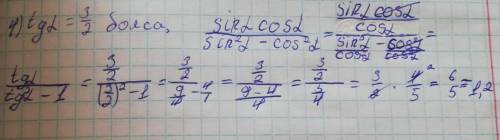 4) tgα = 3/2 болса, sinα cosα / sin²α - cos²α = (sinα cosα / cosα) / (sin²α / cosα - cos²α / cosα) =
tgα / tgα - 1 = (3/2) / ((3/2)² - 1) = (3/2) / (9/4 - 4/4) = (3/2) / ((9-4)/4) = (3/2) / (5/4) = 3/2 · 4²/5 = 6/5 = 1,2